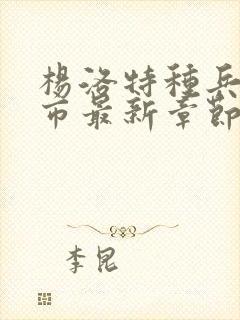 楊洛特種兵
市最新章節
李昆